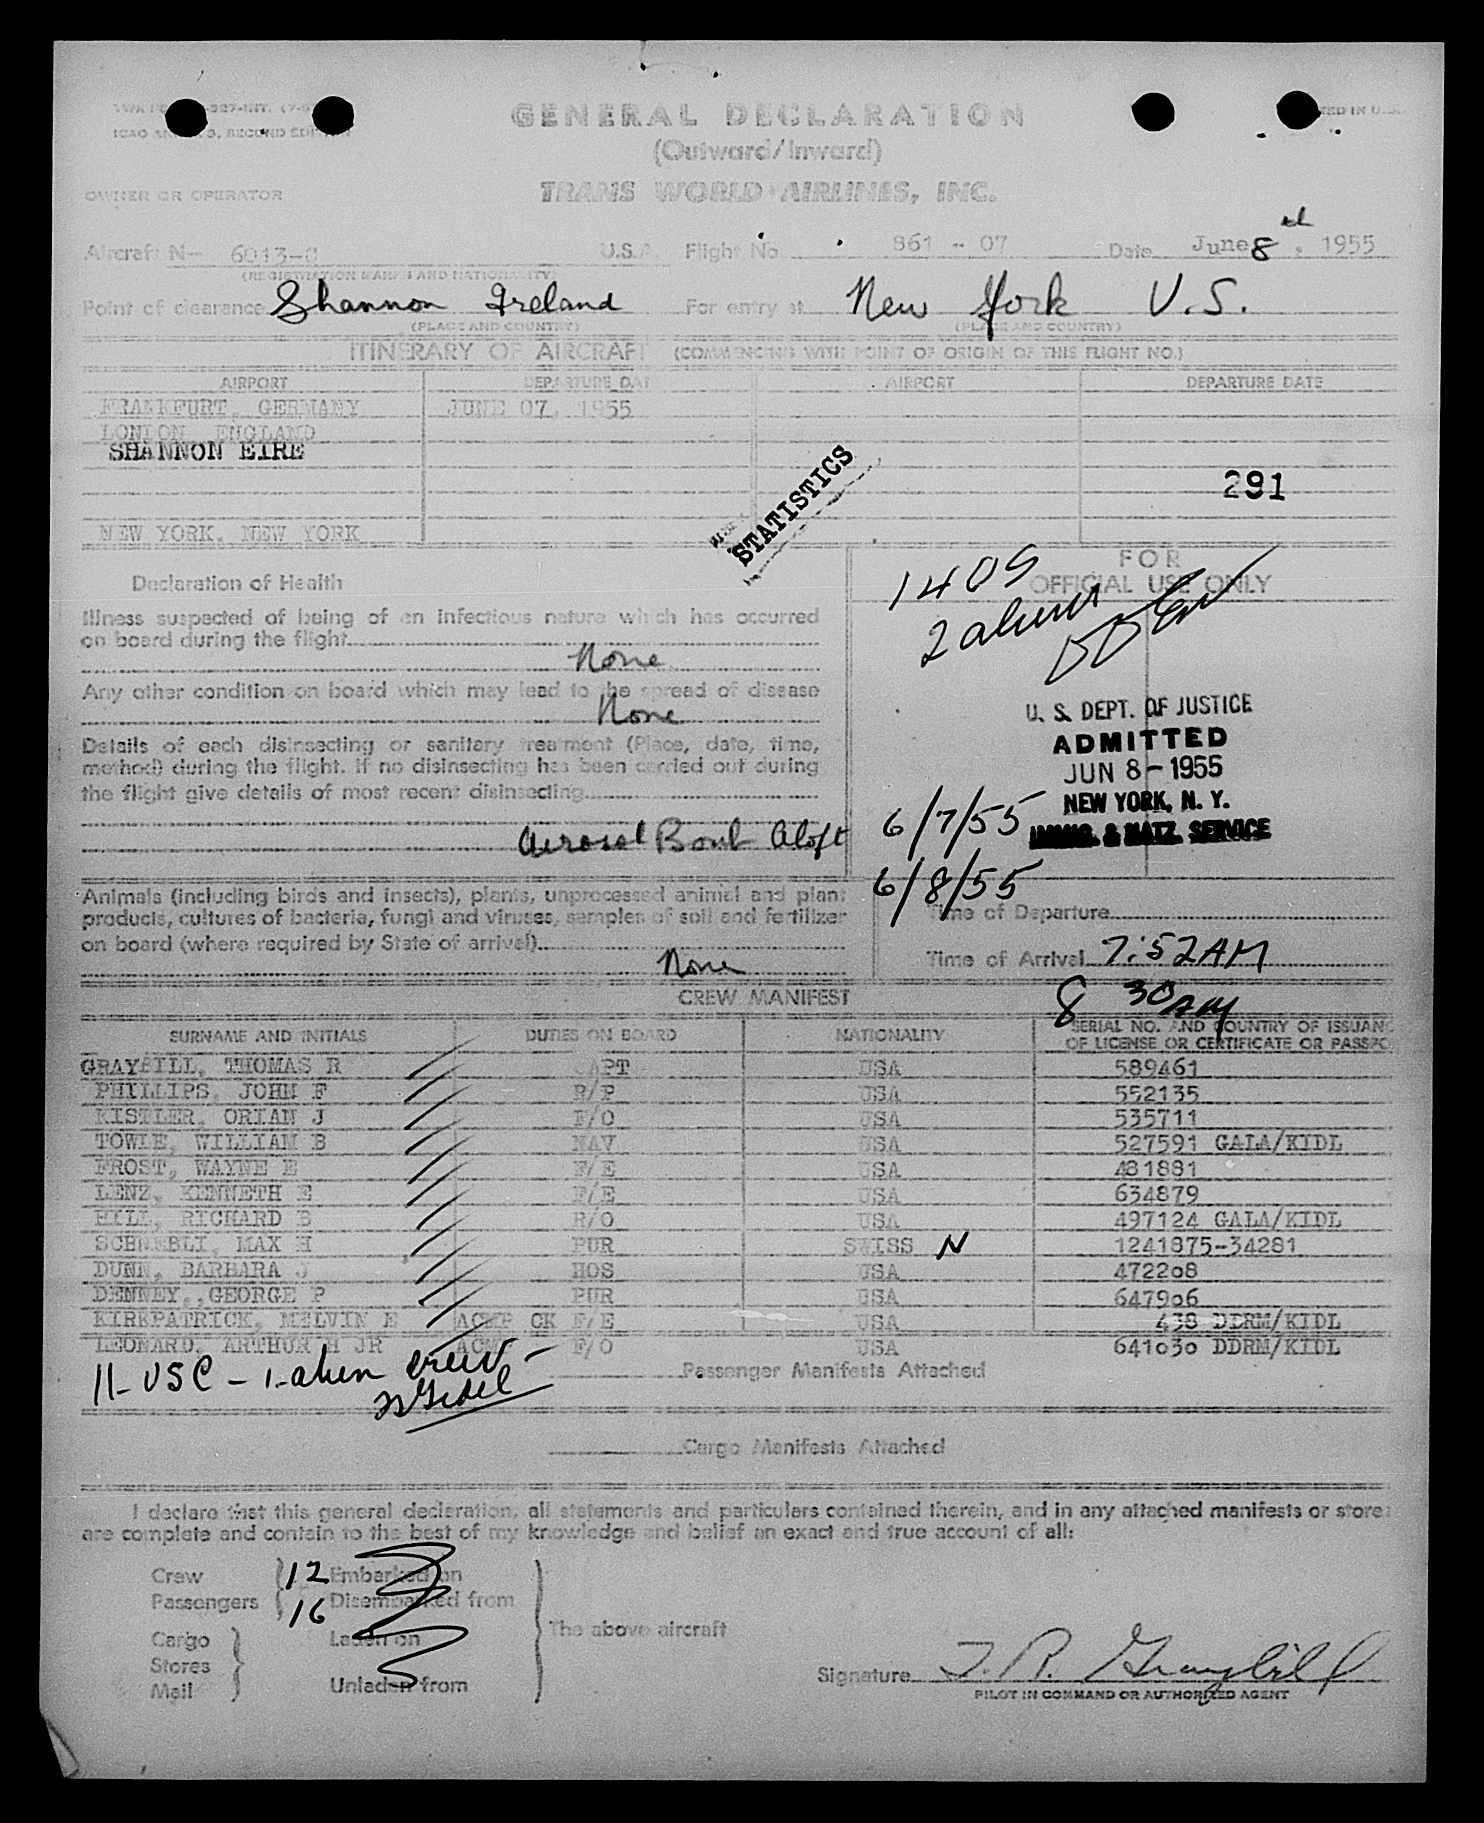 GENERAL DECLARATION
(Outward/Inward)
OWNER OR OPERATOR TRANS WORLD AIRLINES, INC.
Aircraft N- 6013-C U.S.A. Flight No 861 - 07 Date June 8th, 1955
(REGISTRATION MARKS AND NATIONALITY)
Point of clearance Shannon Ireland For entry at New York U.S.
(PLACE AND COUNTRY) (PLACE AND COUNTRY)
ITINERARY OF AIRCRAFT (COMMENCING WITH POINT OF ORIGIN OF THIS FLIGHT NO.)
AIRPORT DEPARTURE DATE AIRPORT DEPARTURE DATE
FRANKFURT, GERMANY JUNE 07, 1955
LONDON, ENGLAND
SHANNON EIRE
291
STATISTICS
NEW YORK, NEW YORK
FOR
OFFICIAL USE ONLY
1409
2 aliens
Declaration of Health
Illness suspected of being of an infectious nature which has occurred
on board during the flight
None
Any other condition on board which may lead to the spread of disease
None
Details of each disinsecting or sanitary treatment (Place, date, time,
method) during the flight. If no disinsecting has been carried out during
the flight give details of most recent disinsecting
Aerosol Bomb Aloft
U. S. DEPT. OF JUSTICE
ADMITTED
JUN 8 - 1955
NEW YORK, N. Y.
IMMIG. & NATZ. SERVICE
6/7/55
6/8/55
Animals (including birds and insects), plants, unprocessed animal and plant
products, cultures of bacteria, fungi and viruses, samples of soil and fertilizer
on board (where required by State of arrival)
None
Time of Departure
Time of Arrival 7:52 AM
8 30 AM
CREW MANIFEST
SURNAME AND INITIALS DUTIES ON BOARD NATIONALITY SERIAL NO. AND COUNTRY OF ISSUANC
OF LICENSE OR CERTIFICATE OR PASSPO
GRAYBILL, THOMAS R CAPT USA 589461
PHILLIPS, JOHN F R/P USA 552135
KISTLER, ORIAN J F/O USA 535711
TOWLE, WILLIAM B NAV USA 527591 GALA/KIDL
FROST, WAYNE E F/E USA 481881
LENZ, KENNETH E F/E USA 634879
HILL, RICHARD B R/O USA 497124 GALA/KIDL
SCHNEBLI, MAX H PUR SWISS N 1241875-34281
DUNN, BARBARA J HOS USA 472208
DENNEY, GEORGE P PUR USA 647906
KIRKPATRICK, MELVIN E ACMP CK F/E USA 438 DDRM/KIDL
LEONARD, ARTHUR H JR ACM F/O USA 641030 DDRM/KIDL
11-USC - 1-alien crew -
Passenger Manifests Attached
Cargo Manifests Attached
I declare that this general declaration, all statements and particulars contained therein, and in any attached manifests or store
are complete and contain to the best of my knowledge and belief an exact and true account of all:
Crew 12 Embarked on
Passengers 16 Disembarked from
The above aircraft
Cargo Laden on
Stores
Mail Unladen from
Signature T. R. Graybill
PILOT IN COMMAND OR AUTHORIZED AGENT